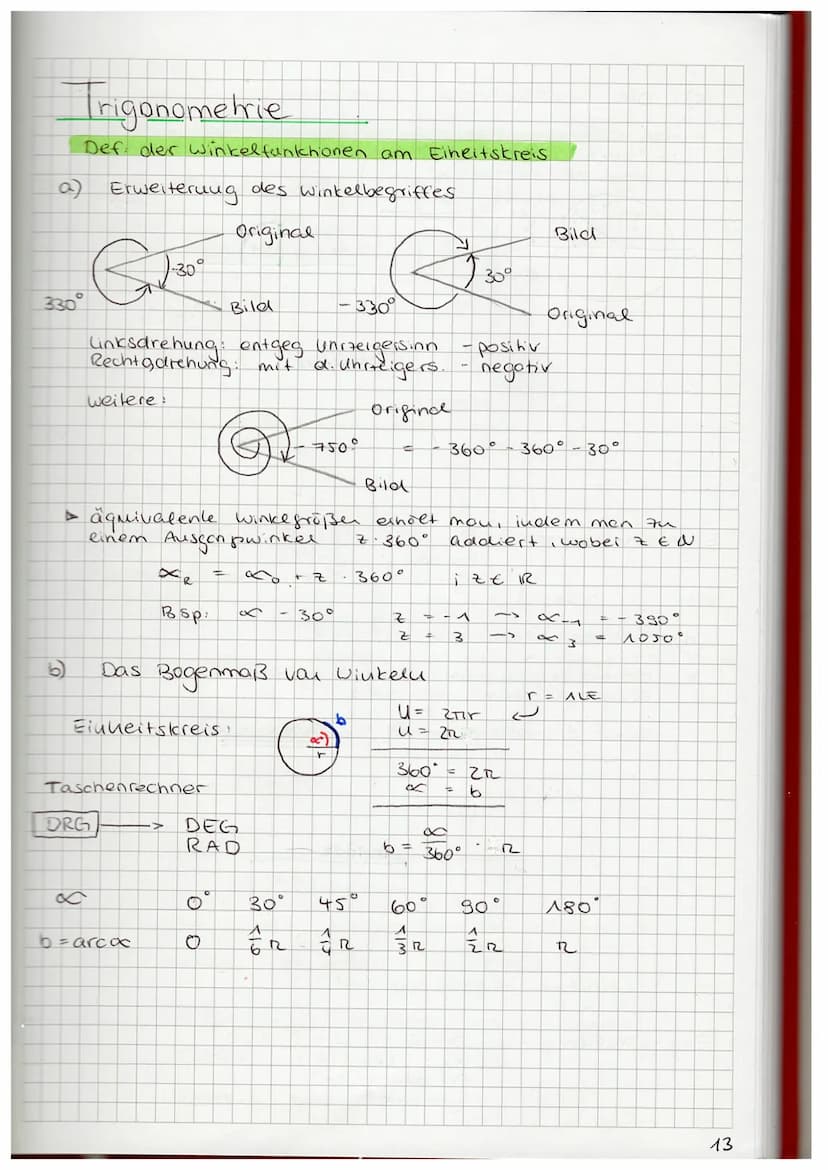 Trigonometrie
Def. der Winkelfunktionen am Eiheitskreis
a) Erweiterung des Winkelbegriffes
Original Bild
-30° 30°
330° Bild -330° Original
Linksdrehung: entgeg Uhrzeigersinn - positiv
Rechtsdrehung: mit d. Uhrzeigers. - negativ
weitere:
Original
- 750° = - 360° - 360° - 30°
Bild
äquivalente Winkelgrößen erhält man, indem man zu
einem Ausgangswinkel z · 360° addiert, wobei z ∈ N
= α₀ + z · 360° ; z ∈ R
Bsp: α - 30° z = -1 → α₋₁ = - 390°
z = 3 → α₃ = 1050°
b) Das Bogenmaß von Winkeln
r = 1LE
Einheitskreis: b U = 2πr
α r U = 2π
360° = 2π
Taschenrechner α = b
DRG → DEG
RAD b = α/360° · π
α 0° 30° 45° 60° 90° 180°
b = arcα 0 1/6 π 1/4 π 1/3 π 1/2 π π
13